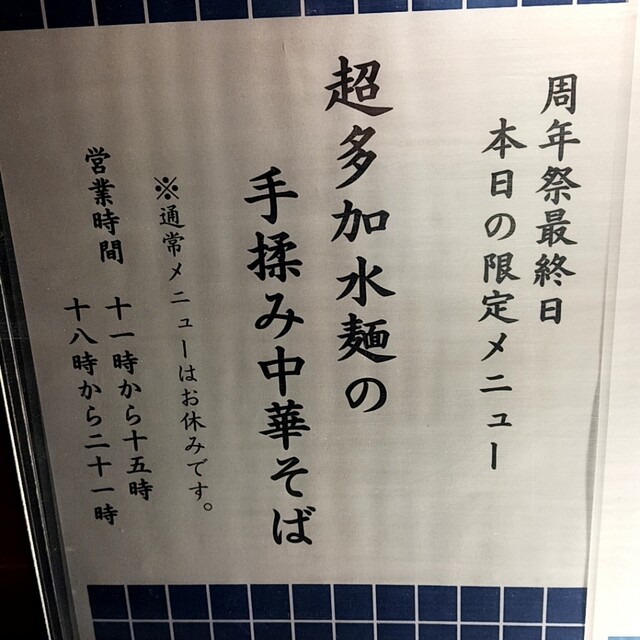 周年祭最終日
本日の限定メニュー
超多加水麺の
手揉み中華そば
※通常メニューはお休みです。
営業時間 十一時から十五時
十八時から二十一時